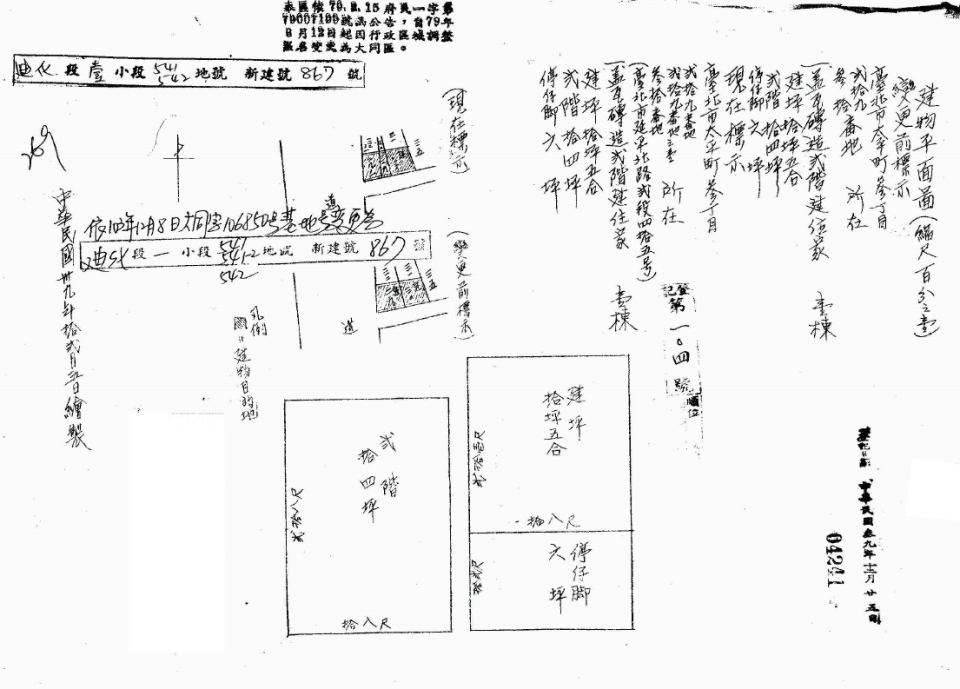 本區依79.2.15府民一字第
79007199號函公告，自79年
3月12日起因行政區域調整
區名變更為大同區。
迪化段壹小段541 542地號 新建號867號
建物平面圖(縮尺百分之壹)
變更前標示
臺北市太平町參丁目
貳拾九番地
參拾番地 所在
蓋瓦磚造貳階建住家 壹棟
建坪拾坪五合
貳階拾四坪
停仔脚六坪
現在標示
臺北市太平町參丁目
貳拾九番地
貳拾九番地之壹
參拾番地 所在
(臺北市延平北路貳段四拾五号)
蓋瓦磚造貳階建住家 壹棟
建坪拾坪五合
貳階拾四坪
停仔脚六坪
登記第一〇四號
順位
(現在標示)
道
依102年12月8日大同字106850号基地号變更為
迪化段一小段541 541-2 542地號 新建號867號
(變更前標示)
道
凡例
建物目的地
中華民國卅九年拾貳月三日繪製
建坪
拾坪五合
拾八尺
停仔脚
六坪
貳階
拾四坪
拾八尺
貳拾八尺
登記日期 中華民國叁九年十二月廿五日
04241